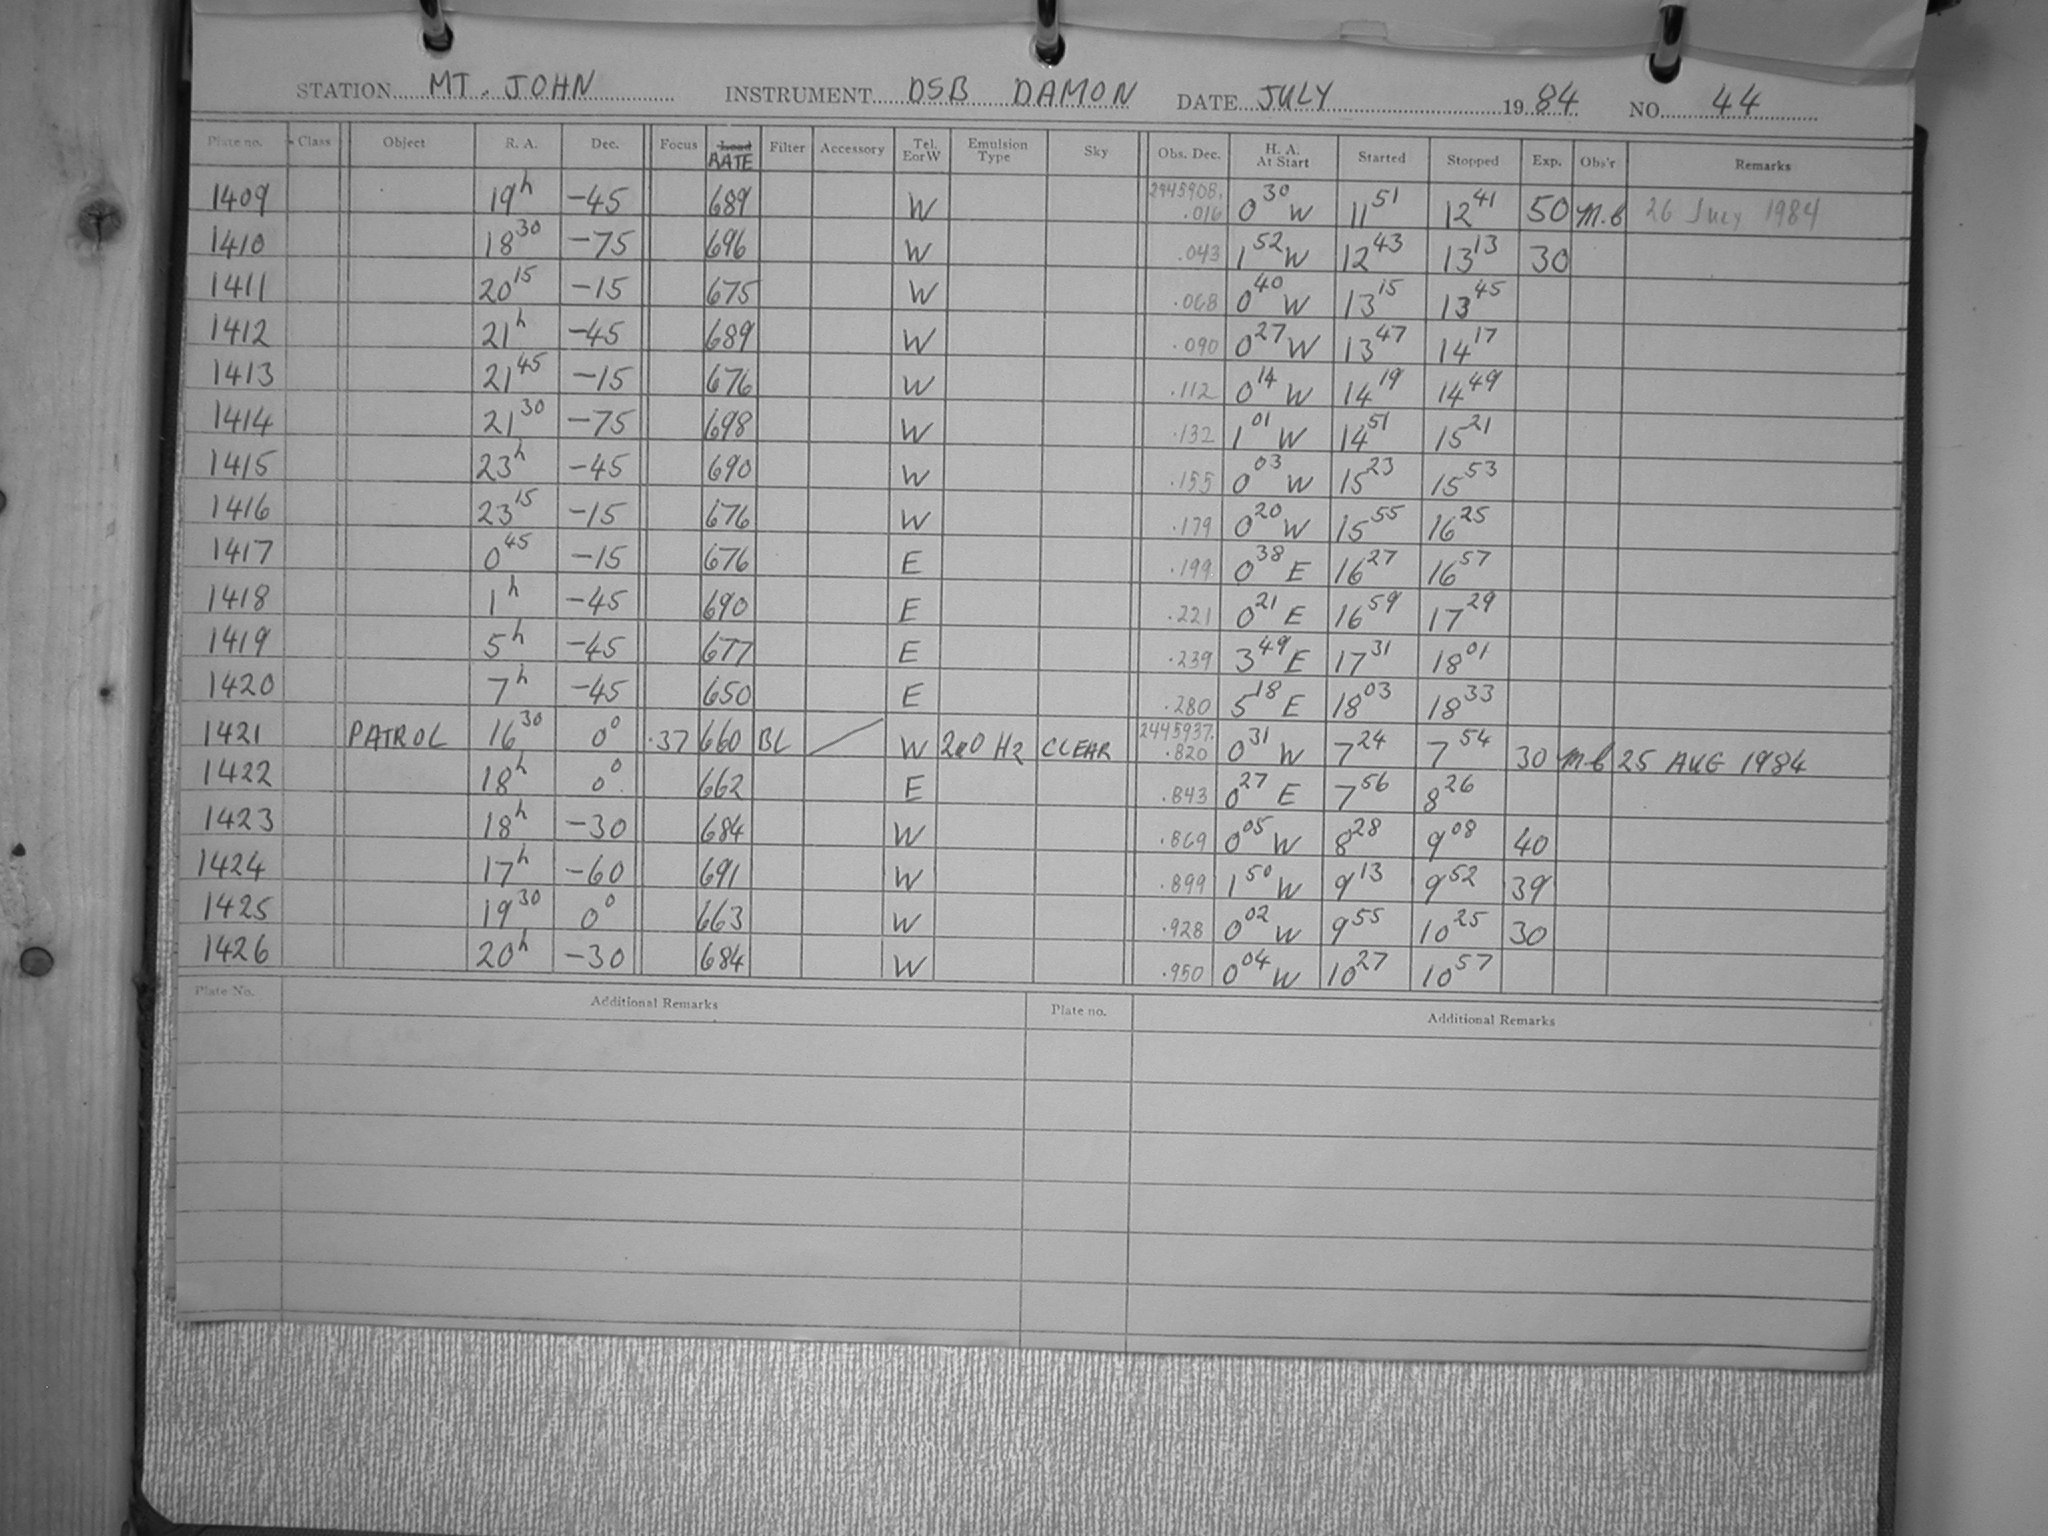 STATION MT. JOHN INSTRUMENT DSB DAMON DATE JULY 1984 NO. 44
Plate no. Class Object R. A. Dec. Focus Load RATE Filter Accessory Tel. E or W Emulsion Type Sky Obs. Dec. H. A. At Start Started Stopped Exp. Obs'r Remarks
1409 19h -45 689 W 2445908. .016 0 30 W 11 51 12 41 50 M.B 26 July 1984
1410 18 30 -75 696 W .043 1 52 W 12 43 13 13 30
1411 20 15 -15 675 W .068 0 40 W 13 15 13 45
1412 21h -45 689 W .090 0 27 W 13 47 14 17
1413 21 45 -15 676 W .112 0 14 W 14 19 14 49
1414 21 30 -75 698 W .132 1 01 W 14 51 15 21
1415 23h -45 690 W .155 0 03 W 15 23 15 53
1416 23 15 -15 676 W .179 0 20 W 15 55 16 25
1417 0 45 -15 676 E .199 0 38 E 16 27 16 57
1418 1h -45 690 E .221 0 21 E 16 59 17 29
1419 5h -45 677 E .239 3 49 E 17 31 18 01
1420 7h -45 650 E .280 5 18 E 18 03 18 33
1421 PATROL 16 30 0° .37 660 BL / W H2 CLEAR 2445937. .820 0 31 W 7 24 7 54 30 M.B 25 AUG 1984
1422 18h 0° 662 E .843 0 27 E 7 56 8 26
1423 18h -30 684 W .869 0 05 W 8 28 9 08 40
1424 17h -60 691 W .899 1 50 W 9 13 9 52 39
1425 19 30 0° 663 W .928 0 02 W 9 55 10 25 30
1426 20h -30 684 W .950 0 04 W 10 27 10 57
Plate No. Additional Remarks Plate no. Additional Remarks